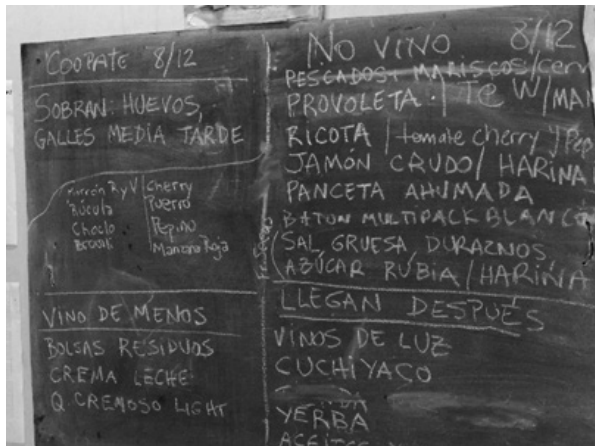 COOPATE 8/12
SOBRAN: HUEVOS,
GALLES MEDIA TARDE
Morrón R y V
Rúcula
Choclo
Brocoli
Cherry
Puerro
Pepino
Manzana Roja
VINO DE MENOS
BOLSAS RESIDUOS
CREMA LECHE
Q CREMOSO LIGHT
NO VINO 8/12
PESCADOS Y MARISCOS/cerv
PROVOLETA. / Te W/MAI
RICOTA / tomate cherry y Pep
JAMÓN CRUDO / HARINA
PANCETA AHUMADA
BATON MULTIPACK BLANCO
SAL GRUESA, DURAZNOS,
AZÚCAR RUBIA / HARINA
LLEGAN DESPUÉS
VINOS DE LUZ
CUCHIYACO
YERBA